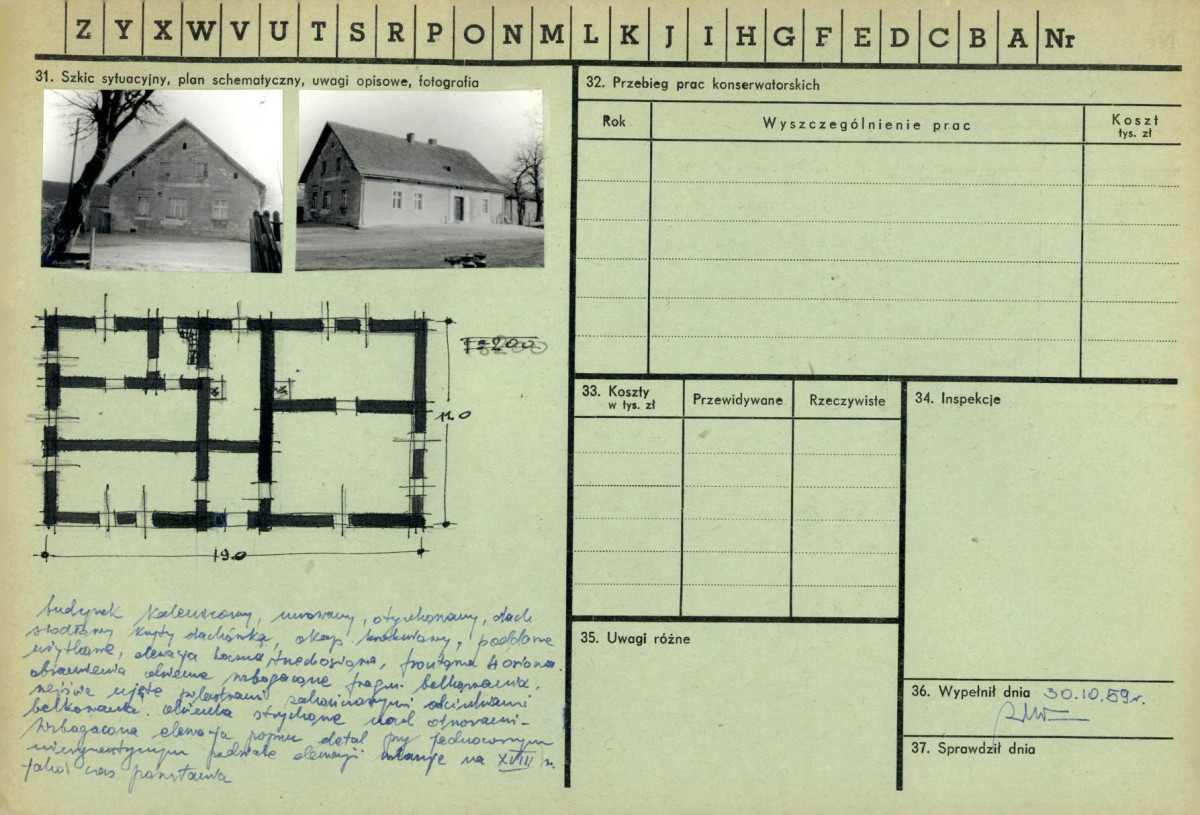 Z Y X W V U T S R P O N M L K J I H G F E D C B A Nr
31. Szkic sytuacyjny, plan schematyczny, uwagi opisowe, fotografia
11.0
19.0
budynek kalenicowy, murowany, otynkowany, dach
siodłowy kryty dachówką, okap krokwiowy, poddasze
użytkowe, elewacja boczna trzechosiowa, frontowa 4 osiowa.
obramienia okienne wzbogacone fragm. belkowania.
wejście ujęte pilastrami zakończonymi odcinkami
belkowania. okienka strychowe nad otworami-
wzbogacona elewacja detal przy jednoczesnym
podziale elewacji wskazuje na XVIII w.
jako czas powstania
32. Przebieg prac konserwatorskich
Rok
Wyszczególnienie prac
Koszt
tys. zł
33. Koszty
w tys. zł
Przewidywane
Rzeczywiste
34. Inspekcje
35. Uwagi różne
36. Wypełnił dnia 30.10.59r.
37. Sprawdził dnia